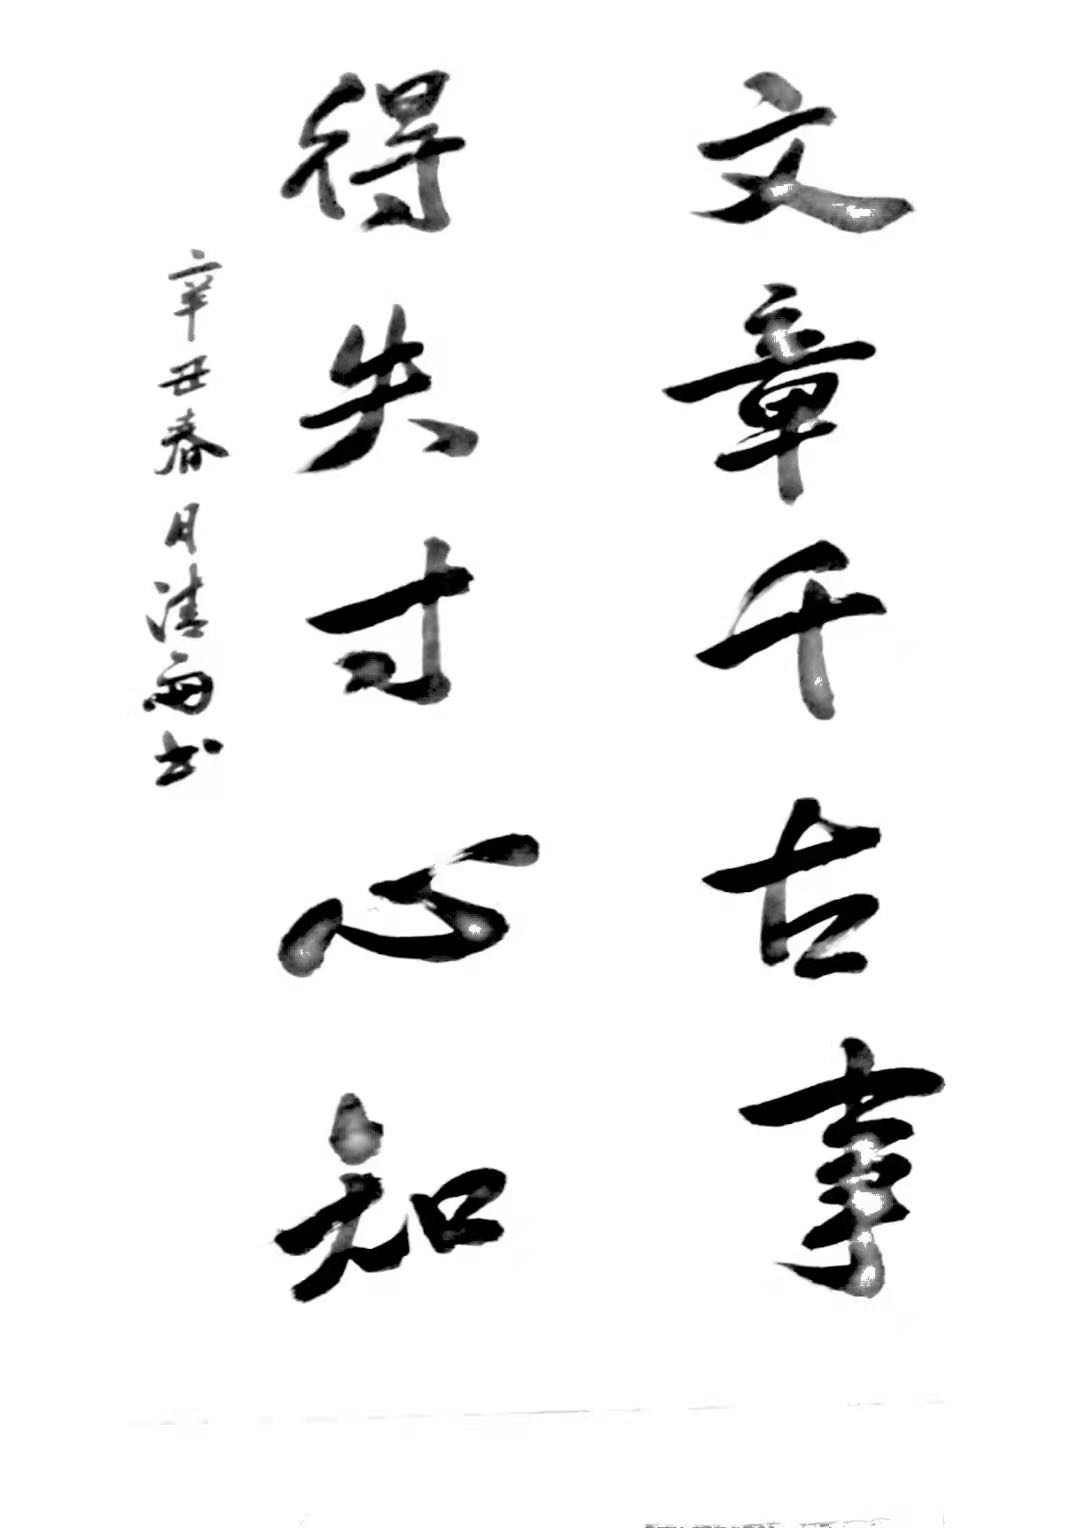 文章千古事
得失寸心知
辛丑春月清雨书